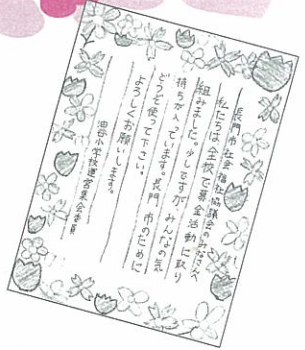 長門市社会福祉協議会のみなさんへ
私たちは、全校で募金活動に取り
組みました。少しですが、みんなの気
持ちが入っています。長門市のために
どうぞ使って下さい。
よろしくお願いします。
油谷小学校運営委員会